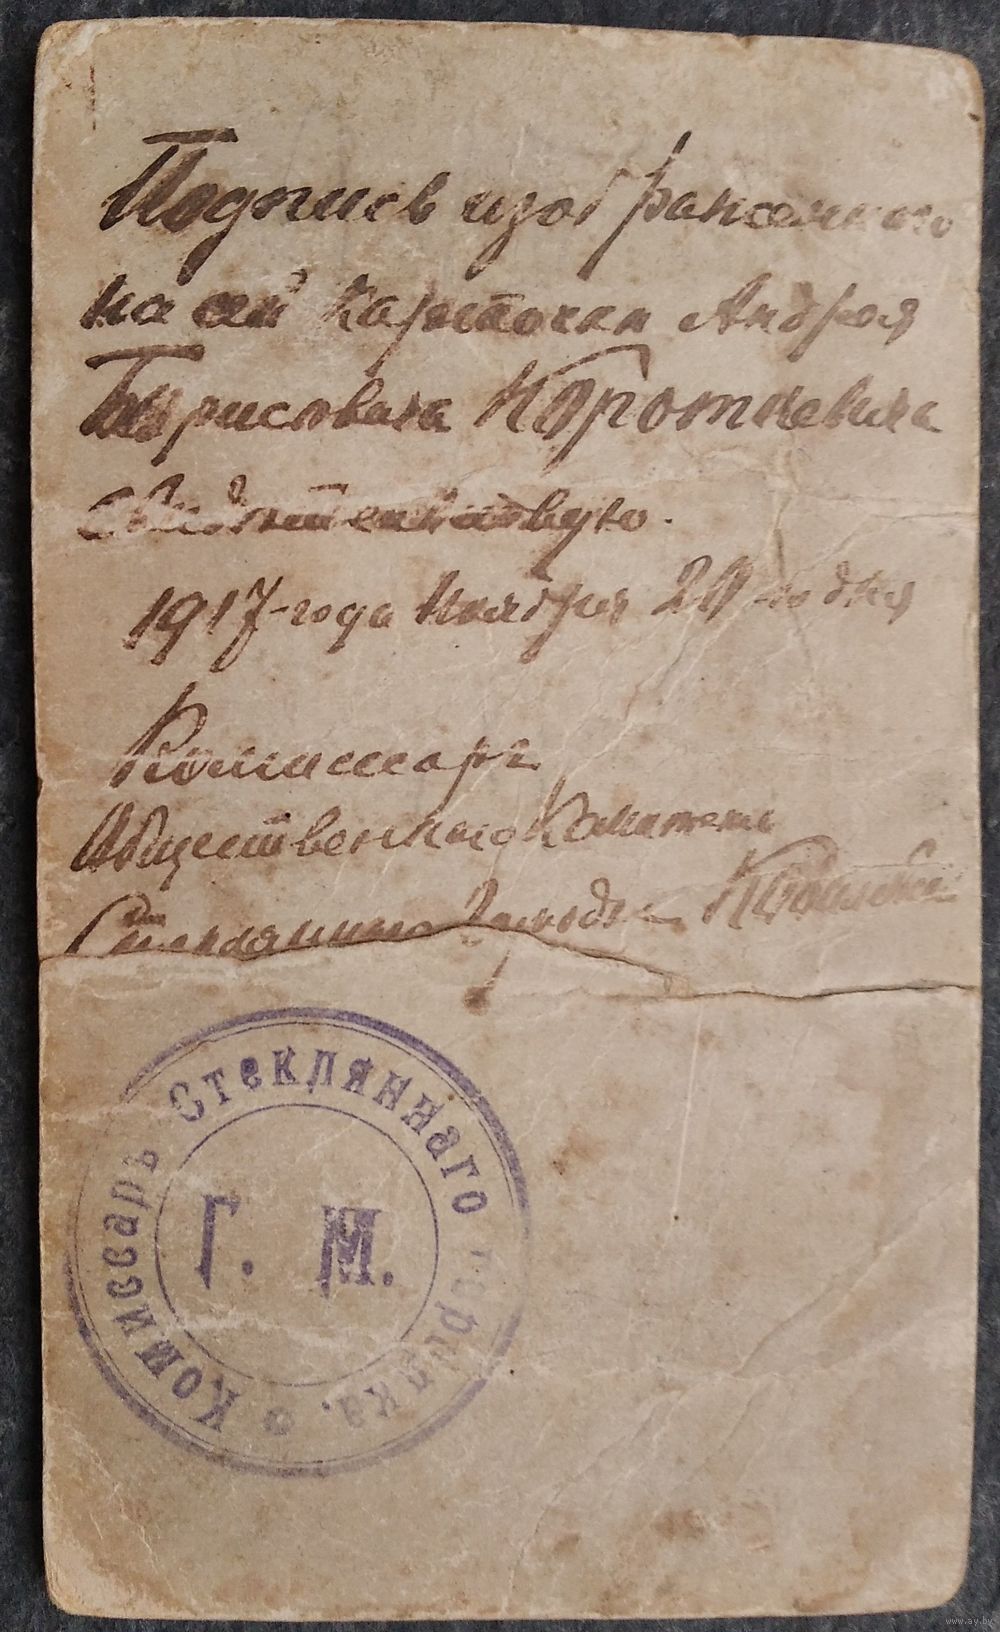 Подпись изображеннаго
на сей карточки Андрея
Борисовича Короткевича
свидѣтельствую.
1917-года Ноября 20-го дня
Комиссаръ
Общественнаго Комитета
Стекляннаго Городка
Комиссаръ Стекляннаго городка.
Г. М.
www.ay.by